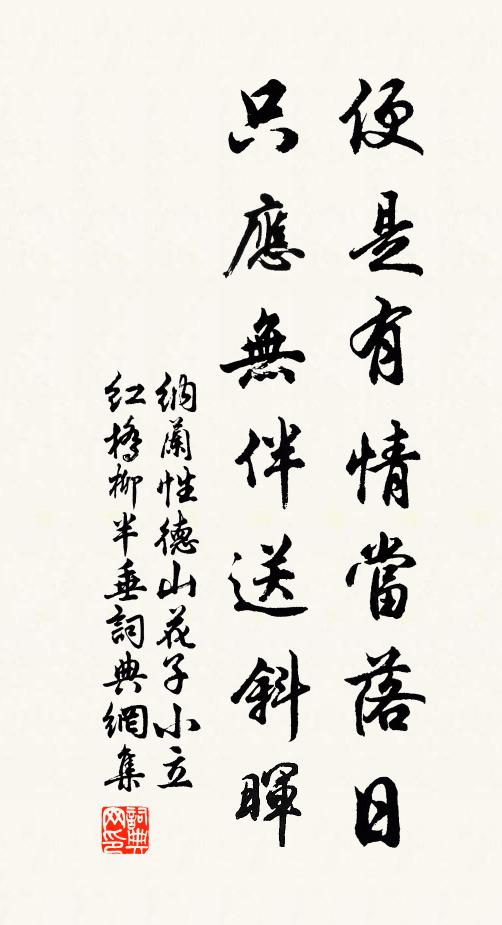 便是有情當落日
只應無伴送斜暉
納蘭性德山花子小立
紅橋柳半垂詞典網集
詞典网印